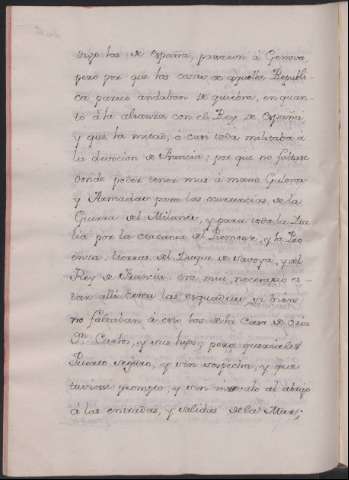 de España, pasaron á Genova,
pero por que las cosas de aquella Republi-
ca parece andaban de quiebra, en quan-
to á la alianza con el Rey de España,
y que la mitad, ó casi toda militaba á
la devocion de Francia; por que no faltase
donde poder tener mas á mano Galeras
y Armadas para las ocurrencias de la
Guerra del Milanés, y para toda la Ita-
lia por la cercania del Piamonte, y la Pro
tierras del Duque de Savoya, y del
Rey de Francia era mui necesario es-
tar alli cerca las esquadras, y
no faltaban á esto los de la Casa de
Dn. Carlos, y sus hijos; para
Puerto seguro, y sin sospecha, y que
tuviese prompto y en al abrigo
á las entradas, y salidas de la Mar;